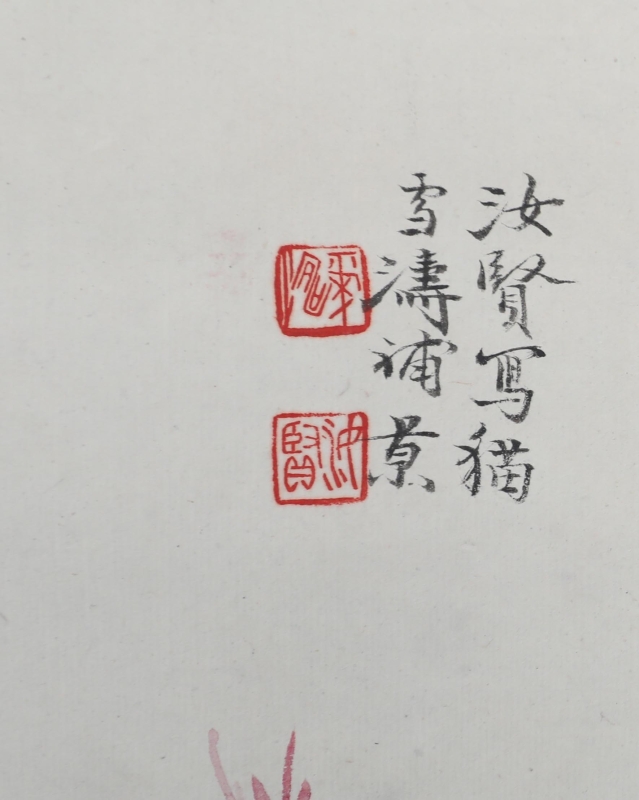 汝賢写猫
雪濤補景
汝賢